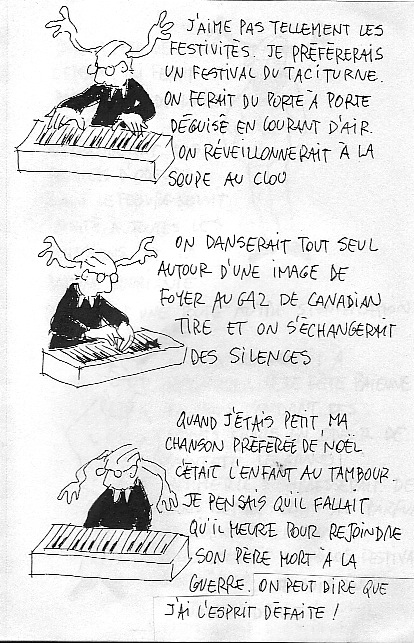 J'AIME PAS TELLEMENT LES
FESTIVITÉS. JE PRÉFÈRERAIS
UN FESTIVAL DU TACITURNE.
ON FERAIT DU PORTE À PORTE
DÉGUISÉ EN COURANT D'AIR.
ON RÉVEILLONNERAIT À LA
SOUPE AU CLOU
ON DANSERAIT TOUT SEUL
AUTOUR D'UNE IMAGE DE
FOYER AU GAZ DE CANADIAN
TIRE ET ON S'ÉCHANGERAIT
DES SILENCES
QUAND J'ÉTAIS PETIT, MA
CHANSON PRÉFÉRÉE DE NOËL
C'ÉTAIT L'ENFANT AU TAMBOUR.
JE PENSAIS QU'IL FALLAIT
QU'IL MEURE POUR REJOINDRE
SON PÈRE MORT À LA
GUERRE. ON PEUT DIRE QUE
J'AI L'ESPRIT DÉFAITE !